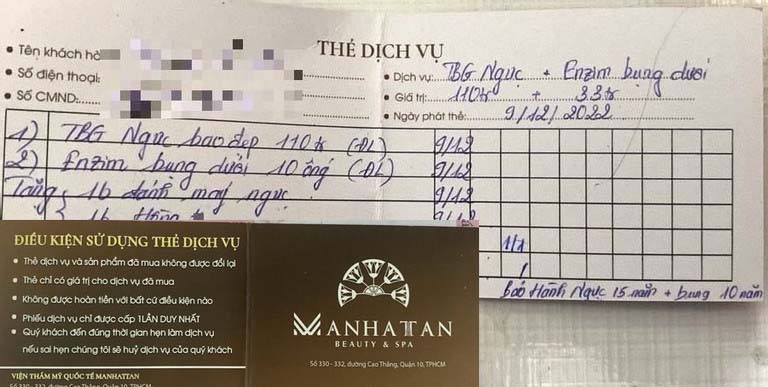 THẺ DỊCH VỤ
• Tên khách hà
• Số điện thoại:
• Số CMND:
• Dịch vụ: TBG Ngực + Enzim bụng dưới
• Giá trị: 110tr + 33tr
• Ngày phát thẻ: 9/12/2022
1) TBG Ngực bao đẹp 110tr (ĐL) 9/12
2) Enzim bụng dưới 10 ống (ĐL) 9/12
Tặng 1b 9/12
1b 9/12
1/1
bảo Hành Ngực 15 năm + bụng 10 năm
ĐIỀU KIỆN SỬ DỤNG THẺ DỊCH VỤ
• Thẻ dịch vụ và sản phẩm đã mua không được đổi lại
• Thẻ chỉ có giá trị cho dịch vụ đã mua
• Không được hoàn tiền với bất cứ điều kiện nào
• Phiếu dịch vụ chỉ được cấp 1 LẦN DUY NHẤT
• Quý khách đến đúng thời gian hẹn làm dịch vụ
nếu sai hẹn chúng tôi sẽ huỷ dịch vụ của quý khách
VIỆN THẨM MỸ QUỐC TẾ MANHATTAN
Số 330 - 332, đường Cao Thắng, Quận 10, TPHCM
MANHATTAN
BEAUTY & SPA
Số 330 - 332, đường Cao Thắng, Quận 10, TPHCM